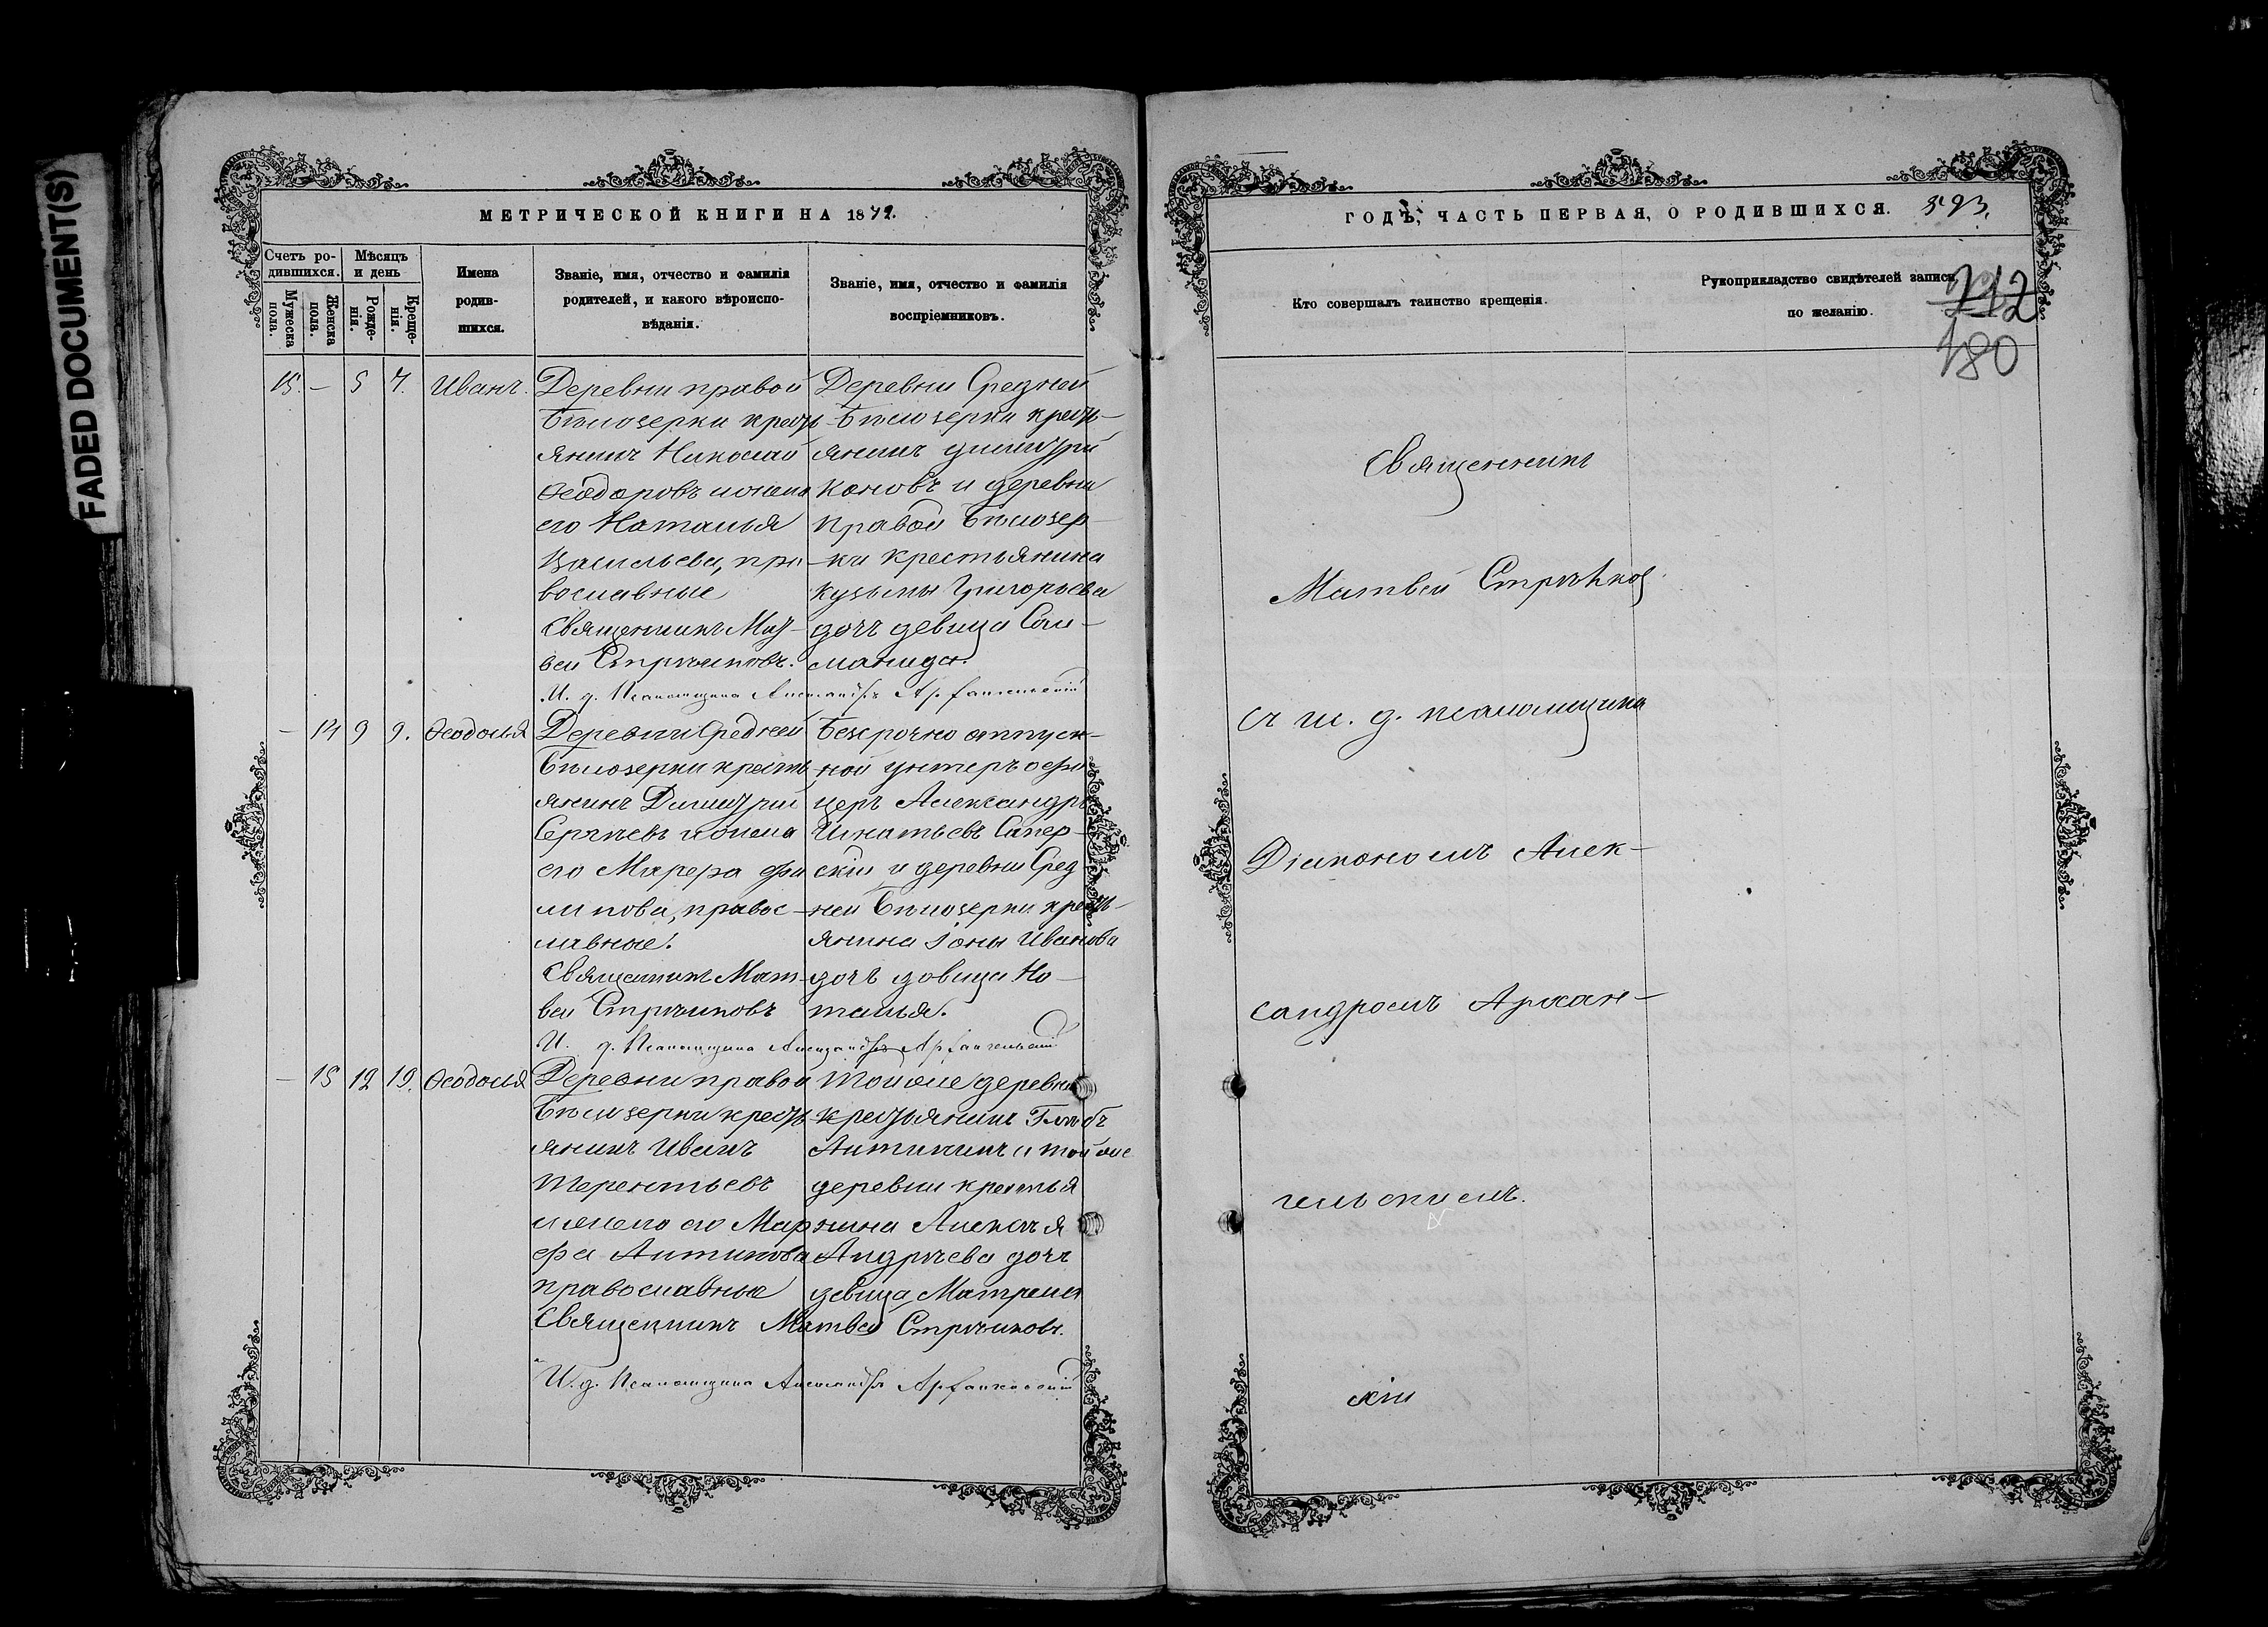 FADED DOCUMENT(S)
МЕТРИЧЕСКОЙ КНИГИ НА 1872.
Счетъ ро-
дившихся.
Мѣсяцъ
и день
Мужеска
пола.
Женска
пола.
Рожде-
нія.
Креще-
нія.
Имена
родив-
шихся.
Званіе, имя, отчество и фамилія
родителей, и какого вѣроиспо-
вѣданія.
Званіе, имя, отчество и фамилія
воспріемниковъ.
15. – 5 7. Иванъ.
Деревни правой
Бѣлозерки кресть
янинъ Николай
Ѳеодоровъ и жена
его Наталья
Васильева, пра
вославные
Священникъ Мат-
вей Стрѣлковъ.
Деревни Средней
Бѣлозерки кресть-
янинъ Димитрій
Коновъ и деревни
правой Бѣлозер-
ки крестьянина
Кузьмы Григорьева
дочь девица Соло-
манида.
И. д. Псаломщика Александръ Архангельскій
– 14 9 9. Ѳеодосья
Деревни Средней
Бѣлозерки кресть
янинъ Димитрій
Сергѣевъ и жена
его Марфа Фи
липова, правос-
лавные.
Священникъ Мат-
вей Стрѣлковъ
Безсрочно отпуск-
ной унтеръ офи
церъ Александръ
Игнатьевъ Сапер-
скій и деревни Сред
ней Бѣлозерки кресть-
янина Іоны Иванова
дочь девица На-
талья.
И. д. Псаломщика Александръ Архангельскій
– 15 12 19. Ѳеодосья
Деревни правой
Бѣлозерки кресть
янинъ Иванъ
Терентьевъ
и жена его Мар
фа Антипова
православные
Тойже деревни
крестьянинъ Глѣбъ
Антипинъ и тойже
деревни крестья
нина Алексѣя
Андрѣева дочь
девица Матрена
Священникъ Матвей Стрѣлковъ.
И. д. Псаломщика Александръ Архангельскій
ГОДЪ, ЧАСТЬ ПЕРВАЯ, О РОДИВШИХСЯ. 593.
Кто совершалъ таинство крещенія.
Рукоприкладство свидѣтелей записи
по желанію.
212
180
Священникъ
Матвей Стрѣлков
съ и. д. псаломщика
Діакономъ Алек-
сандромъ Архан-
гельскимъ.